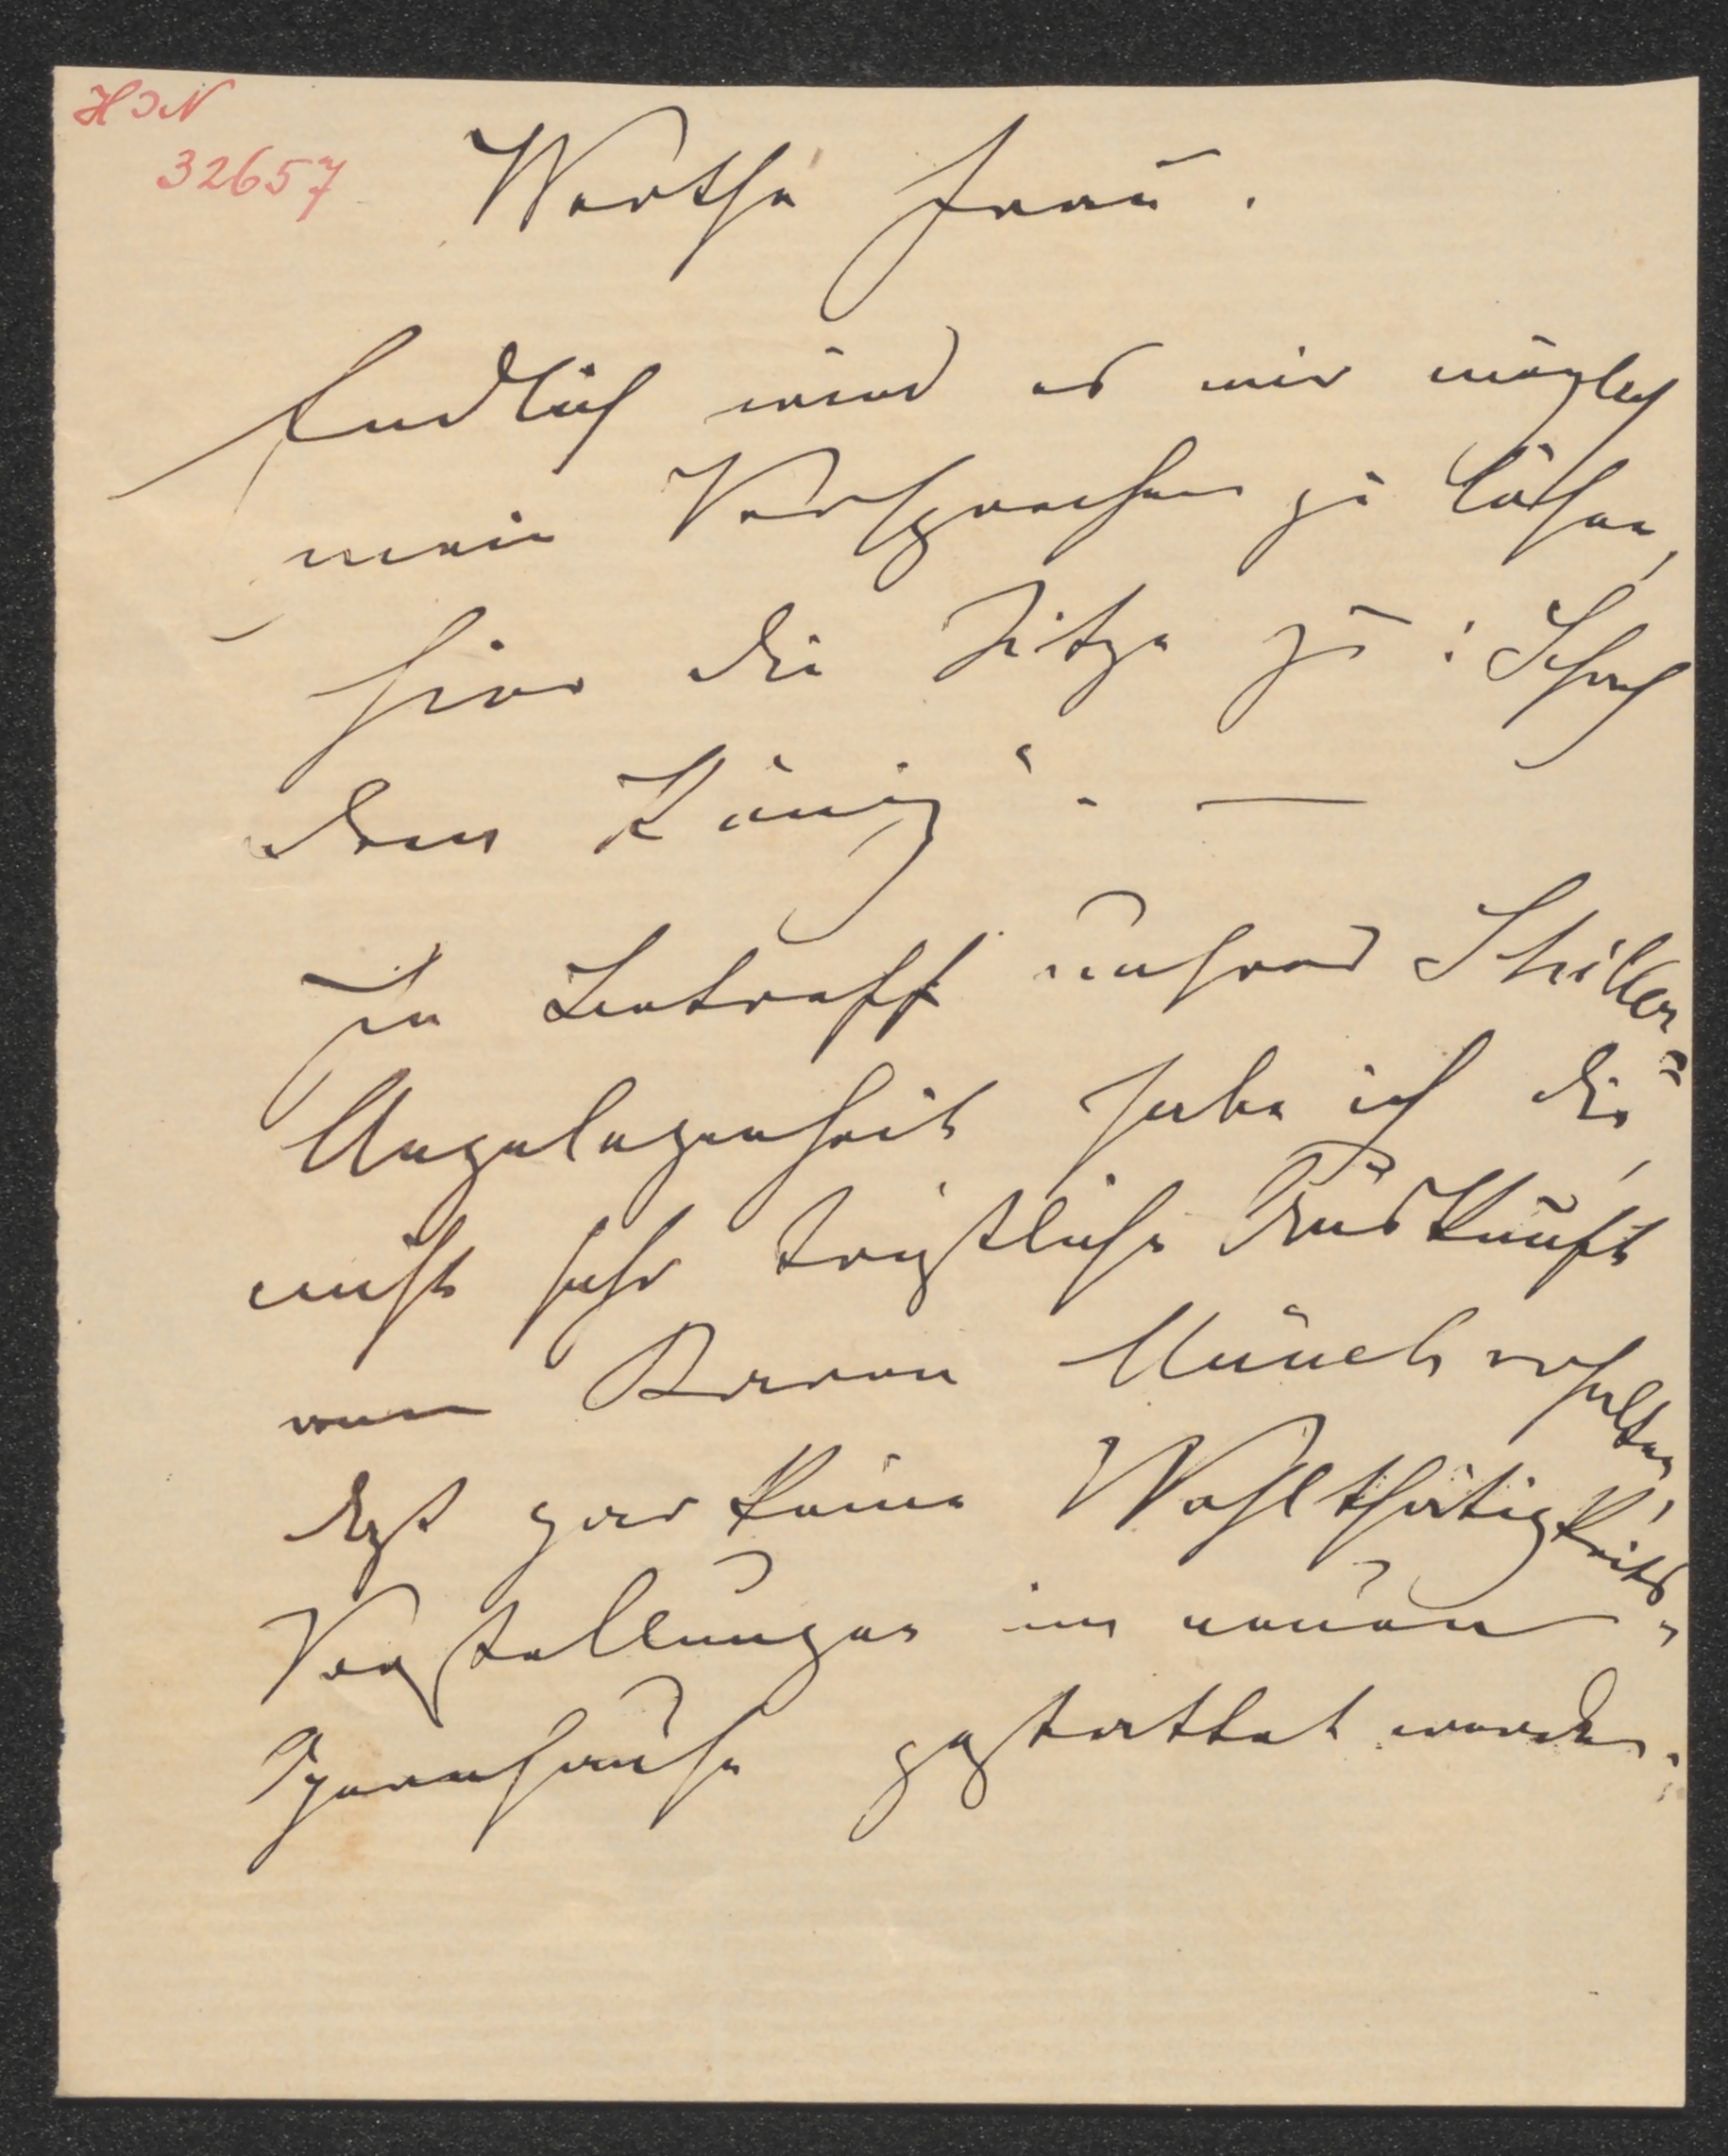 HIN
32657
Werthe Frau.
Endlich wird es mir möglich
mein Versprechen zu lösen,
hier die Sitze zu: Schach
dem König". —
In Betreff unserer Schiller-
Angelegenheit habe ich die,
nicht sehr tröstliche Auskunft
von Baron Münch erhalten,
daß gar keine Wohlthätigkeits-
Vorstellungen im neuen
Opernhause gestattet werden.